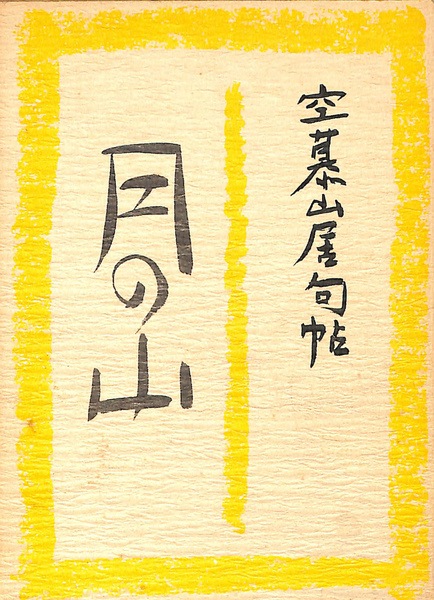 空慕山居句帖
月の山